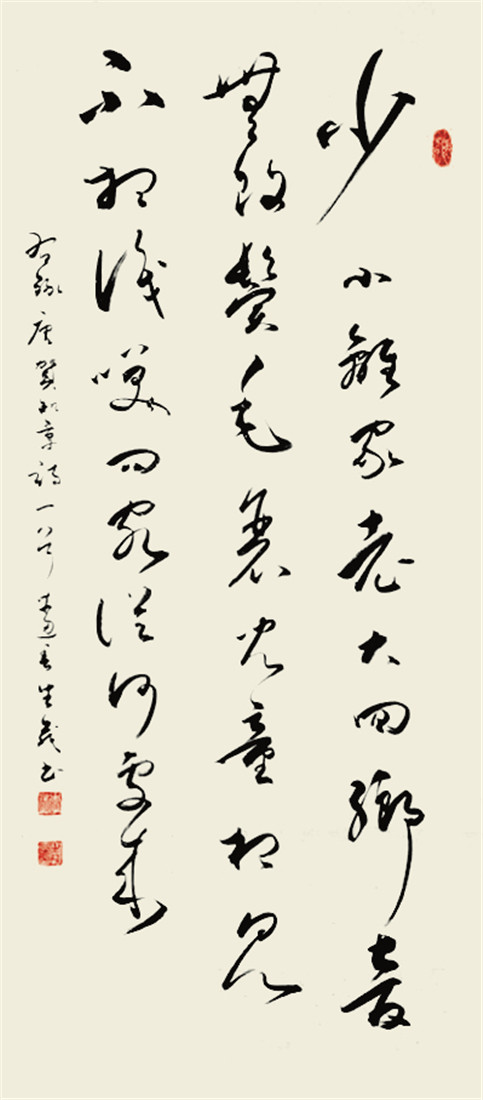 少小離家老大回鄉音
無改鬢毛衰兒童相見
不相識笑問客從何處來
右錄唐賀知章詩一首 書